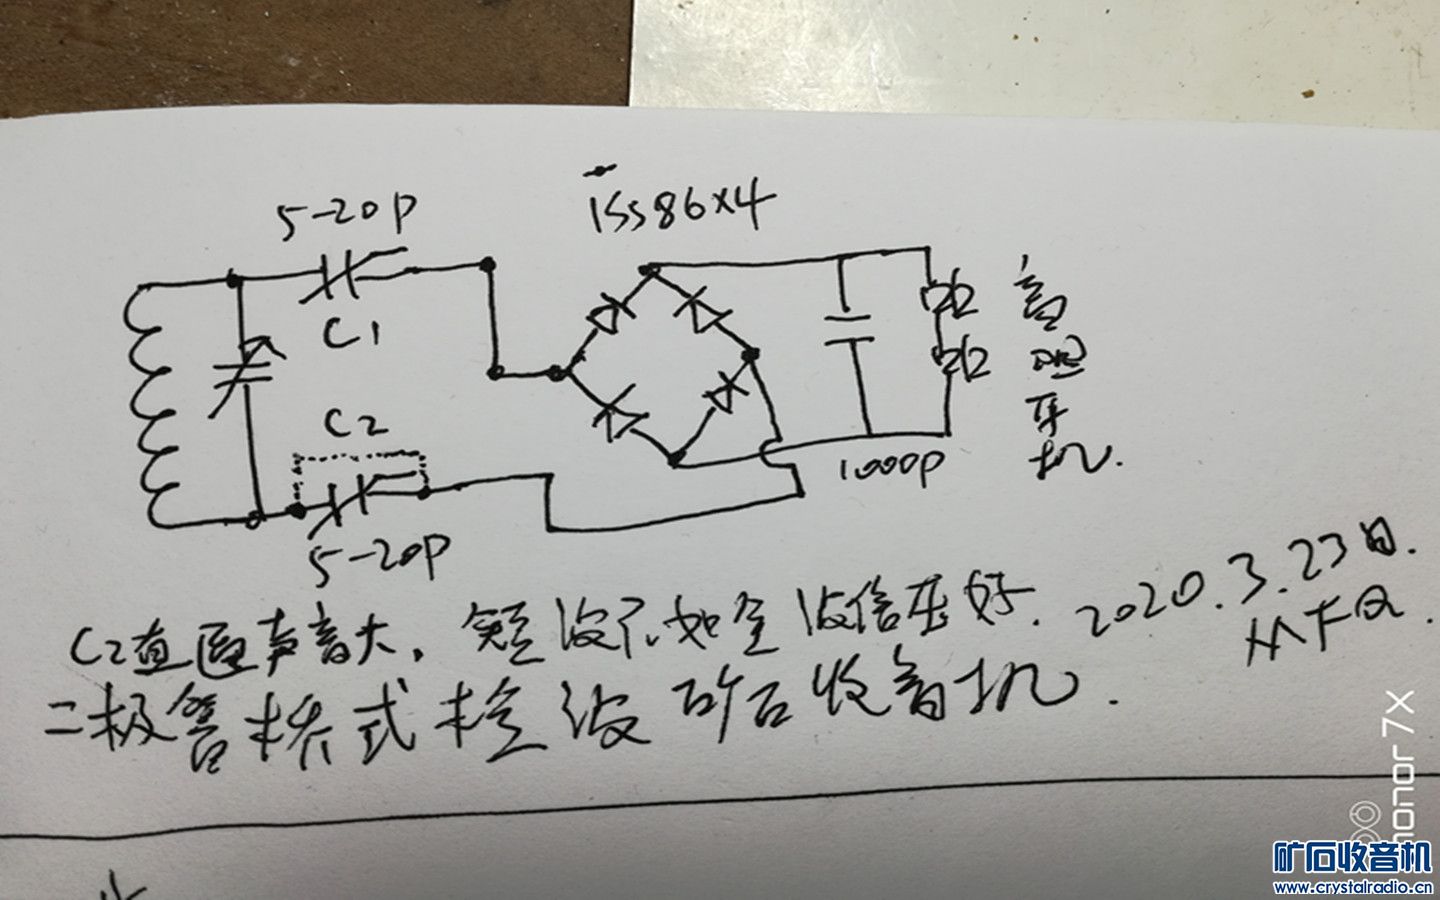 5-20P
1SS86X4
C1
C2
5-20P
1000P
高
阻
耳
机.
C2直通声音大,短波不如全波倍压好.
2020.3.23日.
二极管桥式检波矿石收音机.
honor 7X
矿石收音机
www.crystalradio.cn